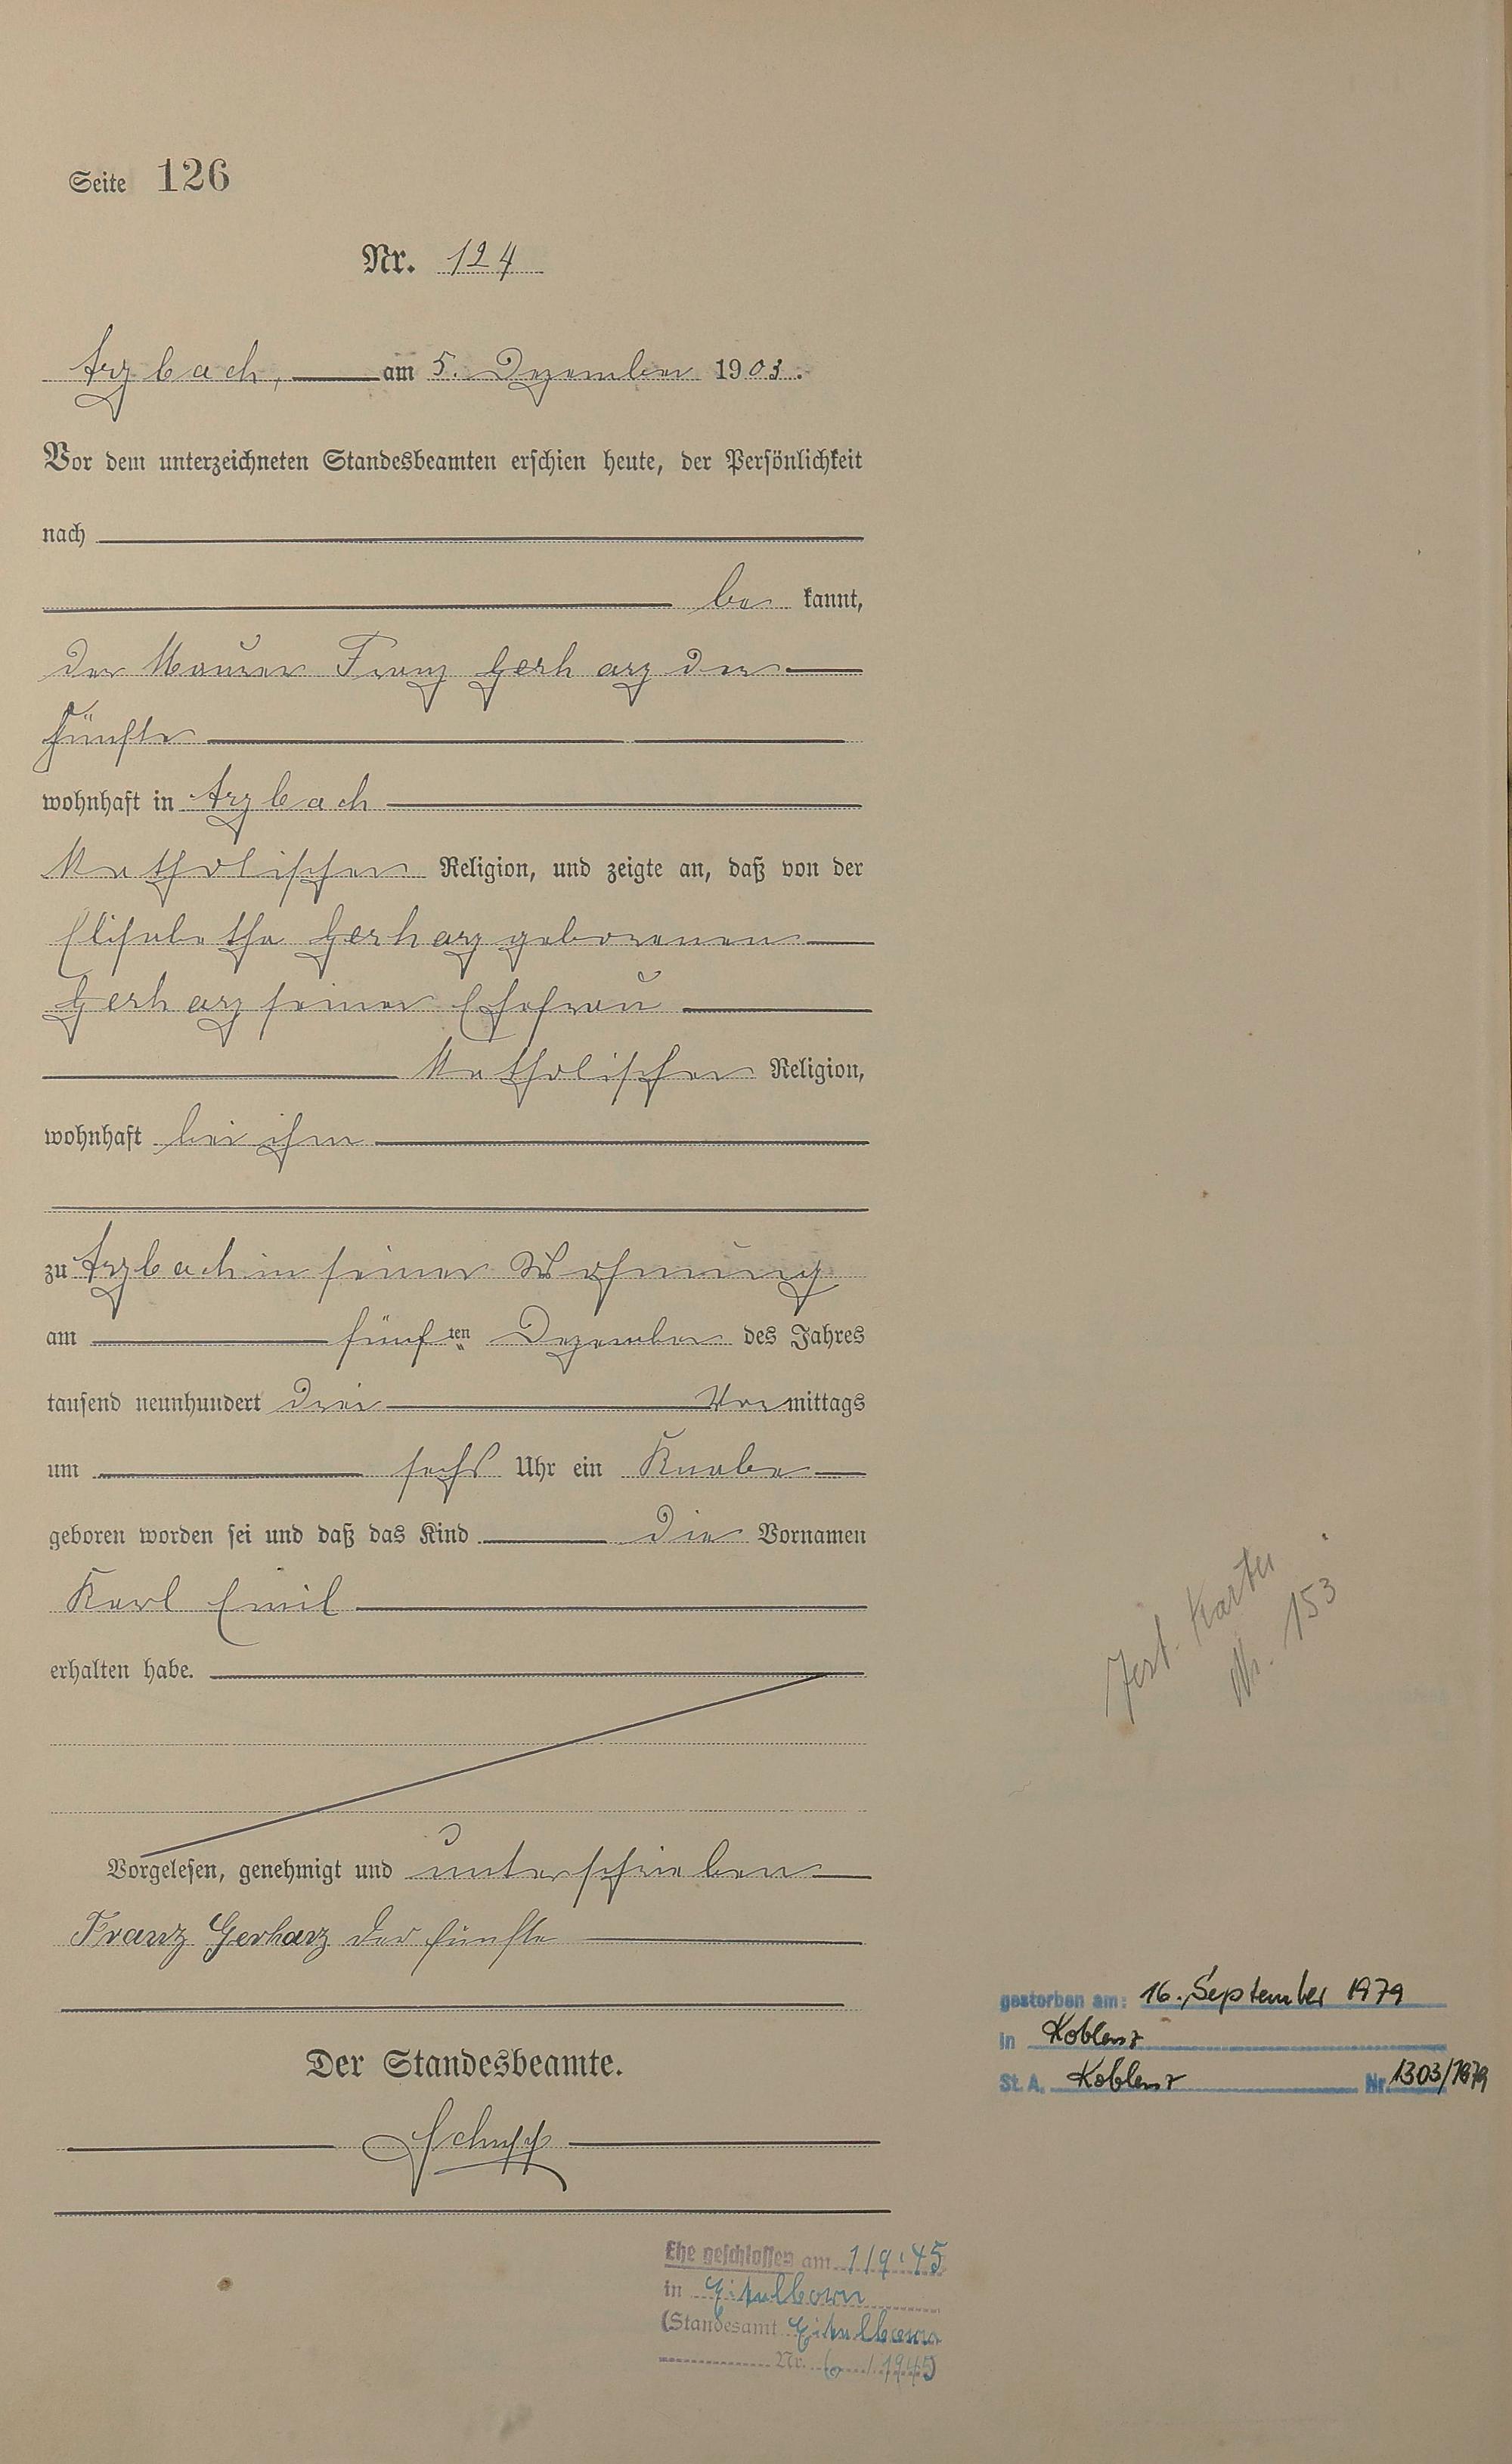 Seite 126
Nr. 124
Arzbach, am 5. Dezember 1903.
Vor dem unterzeichneten Standesbeamten erschien heute, der Persönlichkeit
nach
be kannt,
der Maurer Franz Gerharz der
fünfte
wohnhaft in Arzbach
katholischer Religion, und zeigte an, daß von der
Elisabetha Gerharz geborenen
Gerharz seiner Ehefrau
katholischer Religion,
wohnhaft bei ihm
zu Arzbach in seiner Wohnung
am fünften Dezember des Jahres
tausend neunhundert drei Vormittags
um sechs Uhr ein Knabe
geboren worden sei und daß das Kind die Vornamen
Karl Emil
erhalten habe.
Vorgelesen, genehmigt und unterschrieben
Franz Gerharz der fünfte
Der Standesbeamte.
Schupp
Karte
Nr. 153
gestorben am: 16. September 1979
in Koblenz
St. A. Koblenz Nr. 1303/1979
Ehe geschlossen am 1/9.45
in Eitelborn
(Standesamt Eitelborn
Nr. 6/1945)